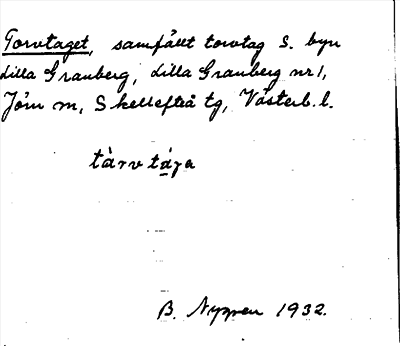 Torvtaget, samfällt torvtag S. byn
Lilla Granberg, Lilla Granberg nr 1,
Jörn sn, Skellefteå tg, Västerb. l.
tàrv tá̱ga
B. Nyman 1932.